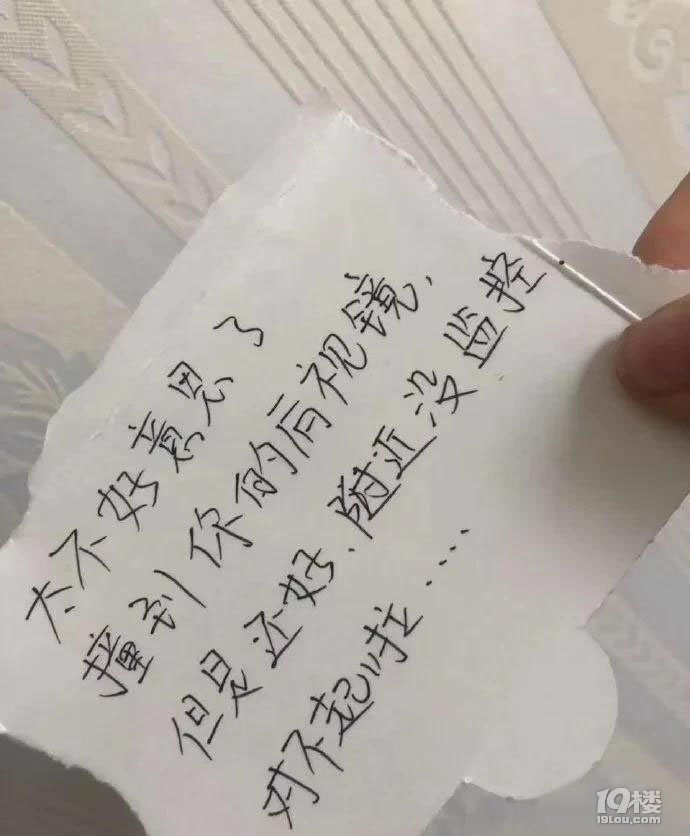 太不好意思了
撞到你的后视镜,
但是还好、附近没监控
对不起啦....
19楼
19lou.com